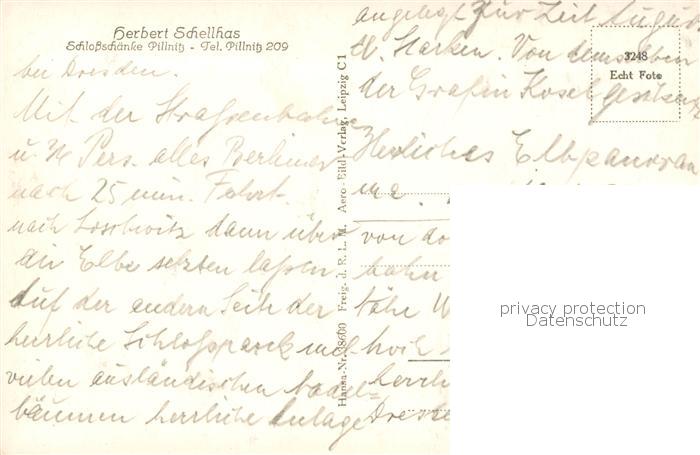 Herbert Schellhas
Schloßschänke Pillnitz - Tel. Pillnitz 209
bei Dresden.
Mit der Strassenbahn
u. 14 Pers. alles Berliner
nach 25 min. Fahrt.
nach Loschwitz dann über
die Elbe setzten lassen
Auf der andern Seite der
herrliche Schlosspark mit
vielen ausländischen Nadel=
bäumen herrliche Anlage
Hansa-Nr. 18600 Freig. d. R. L. M. Aero-Bild-Verlag, Leipzig C1
angelegt zur Zeit August
d. Starken. Von demselben
der Gräfin Kosel
3248
Echt Foto
Herrliches Elbpanoram
ma.
von
bahn
Nähe W
hoch
herrl
Dresde
privacy protection
Datenschutz